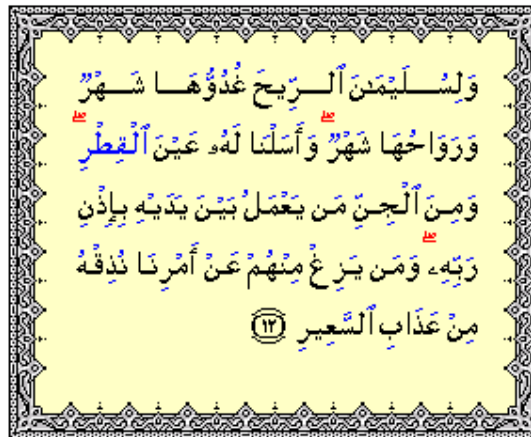 وَلِسُلَيْمَـٰنَ ٱلـرِّيحَ غُدُوُّهَـا شَـهْرٌ
وَرَوَاحُهَا شَهْرٌ ۖ وَأَسَلْنَا لَهُۥ عَيْنَ ٱلْقِطْرِ ۖ
وَمِنَ ٱلْجِنِّ مَن يَعْمَلُ بَيْنَ يَدَيْهِ بِإِذْنِ
رَبِّهِۦ ۖ وَمَن يَزِغْ مِنْهُمْ عَنْ أَمْرِنَا نُذِقْهُ
مِنْ عَذَابِ ٱلسَّعِيرِ ١٢